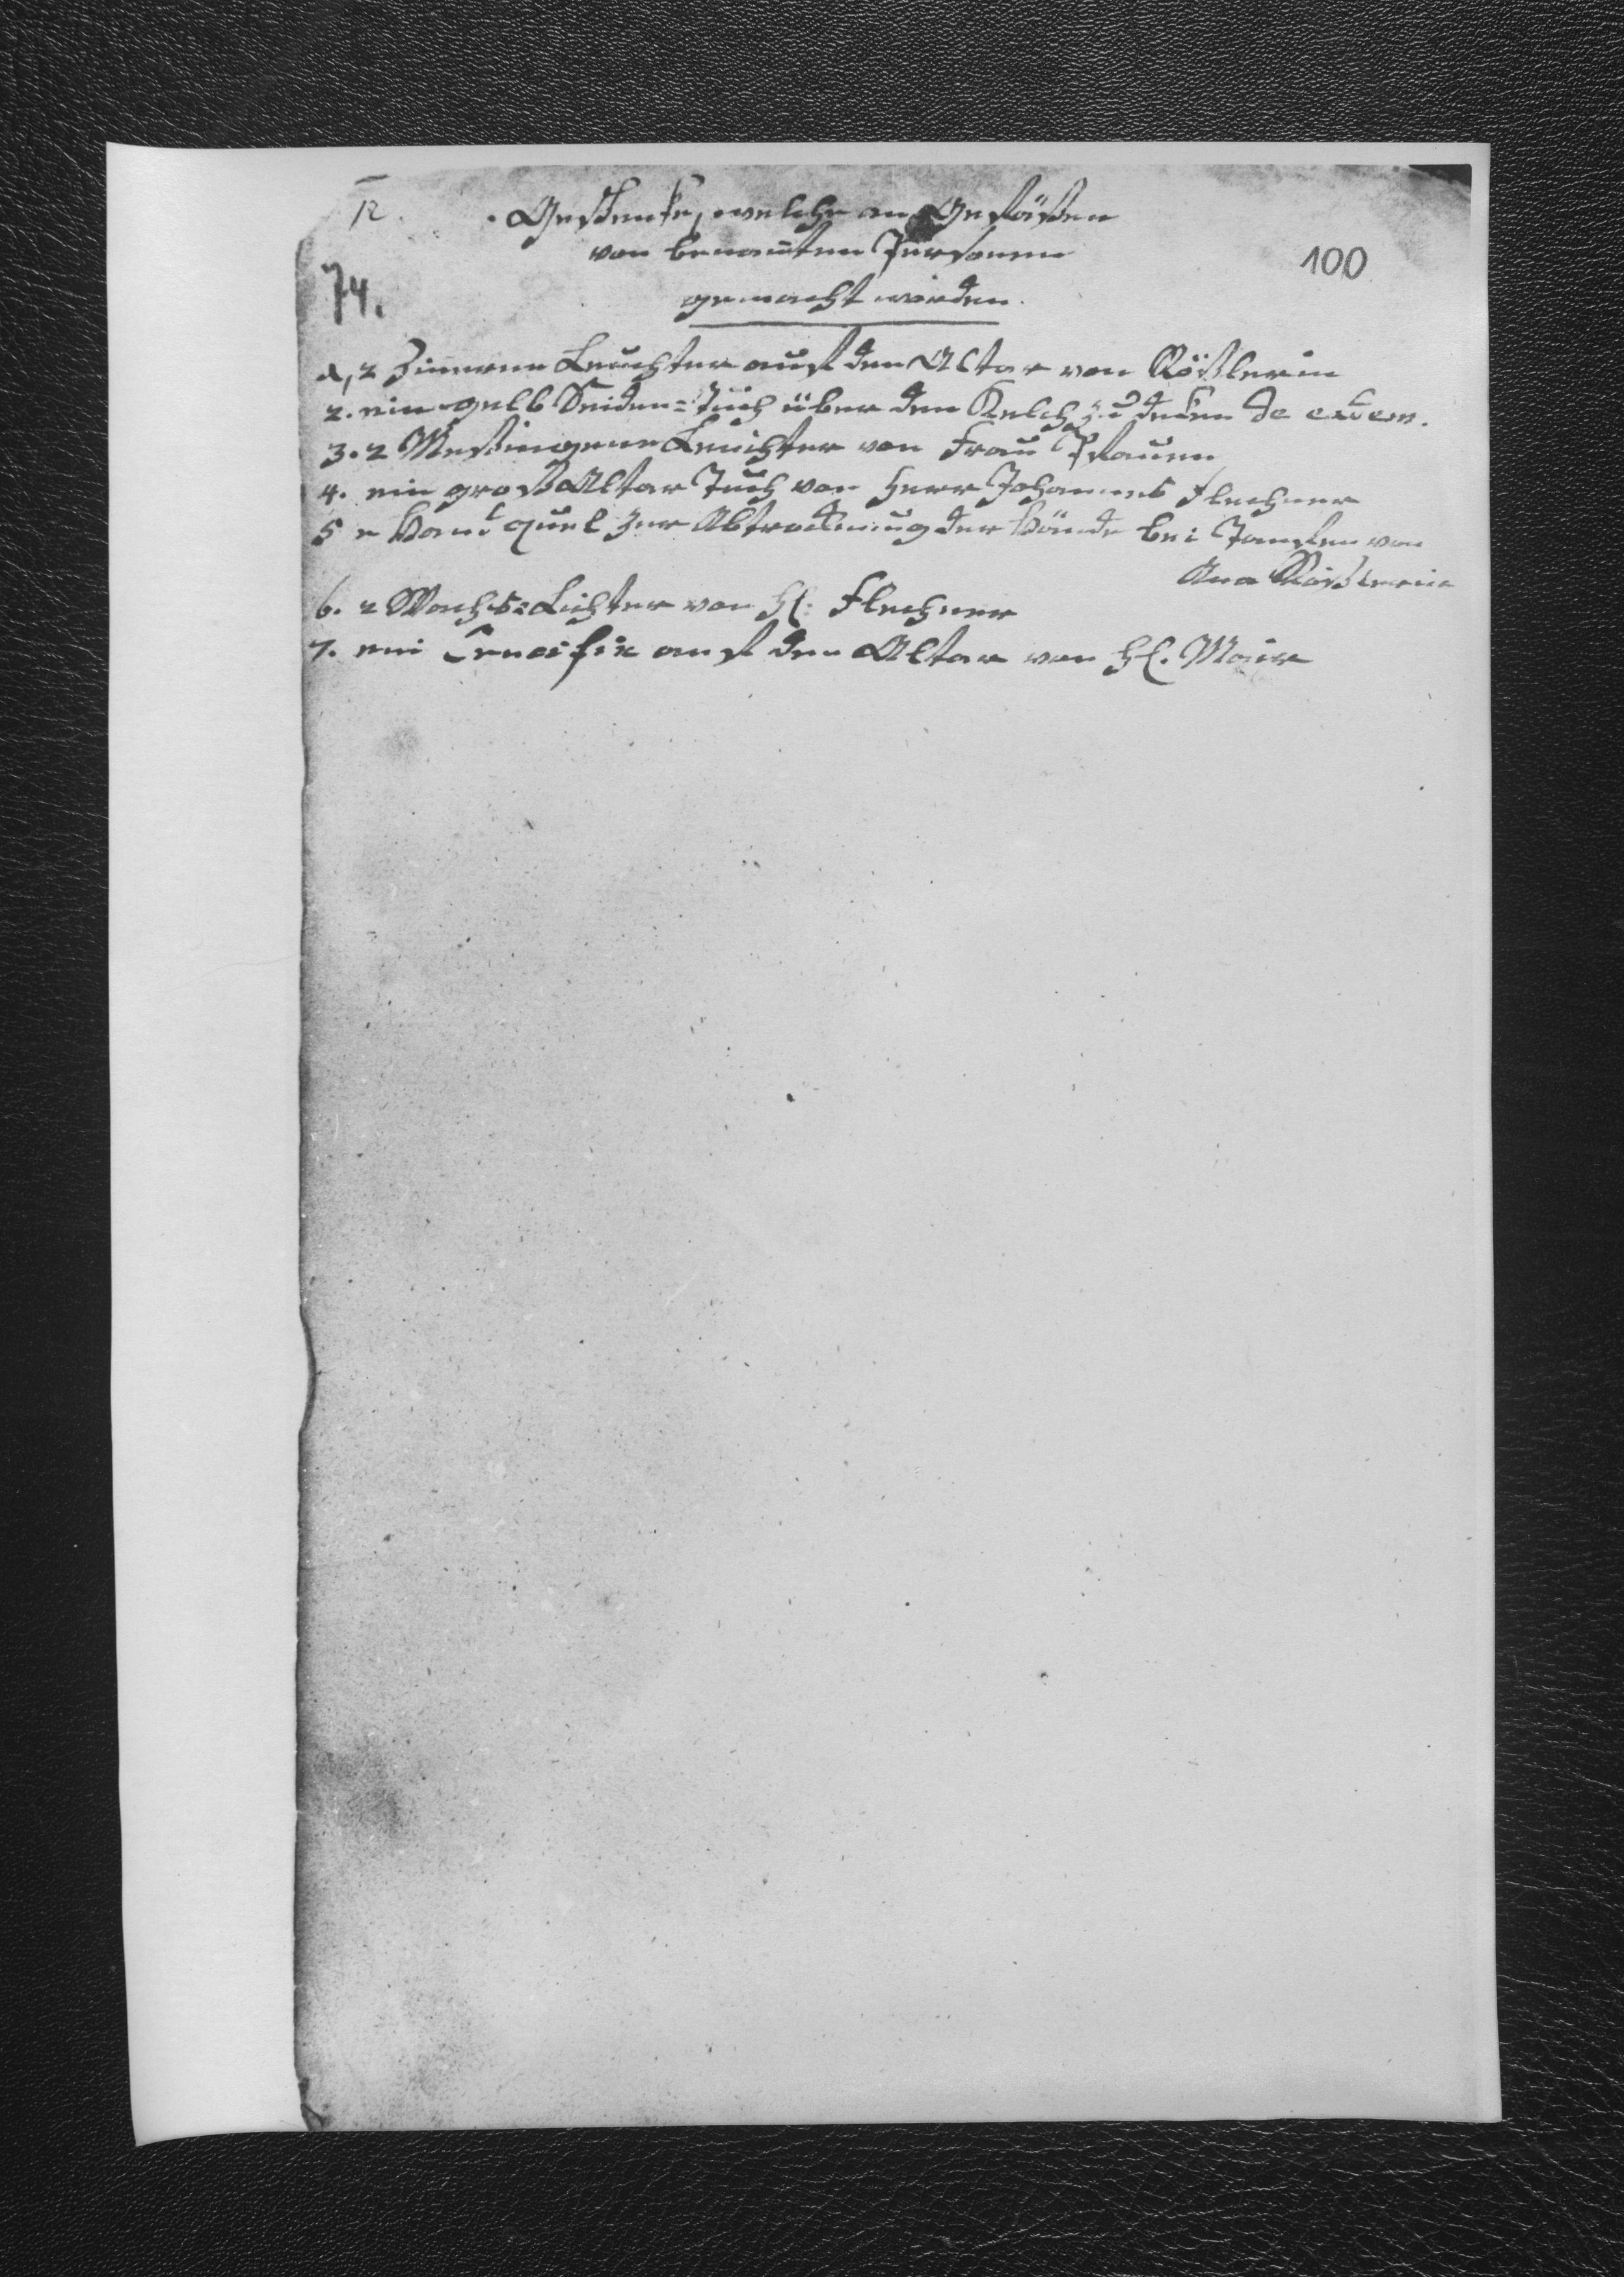 12.
Geschenke, welche an Gefäßen
von benañten Personen
100
74.
gemacht wurden.
1, 2 Zinnerne Leuchter auf den Altar von Rößlerin
2. ein gelb Seiden=Tuch über den Kelch zu decken de
3. 2 Messingene Leuchter von Frau Pfauen
4. ein groß Altar Tuch von Herr Johannes Flechner
5 Hand quel zur Abtrocknung der Hände bei Taufen von
Ana Rößlerin
6. 2 Wachs=Lichter von H. Flechner
7. ein Crucifix auf den Altar von H. Maier